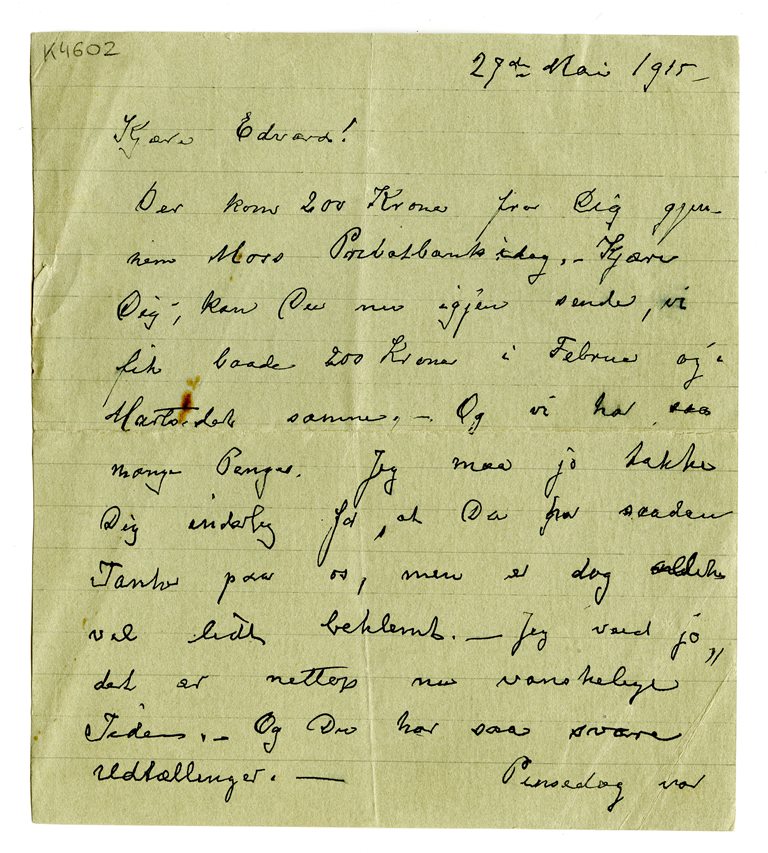 K4602
27de Mai 1915 –
Kjære Edvard!
Der kom 200 Krone fra Dig gjen-
nem Mors Privatbank idag. – Kjære
Dig, kan Du nu igjen sende, vi
fik baade 200 Krone i Februa og i
Marts det samme. – Og vi har saa
mange Penge. Jeg maa jo takke
Dig inderlig for, at Du har saadan
Tanke paa os, men er dog
vel lidt beklemt. – Jeg veed jo,
det er nettop nu vanskelige
Tider. – Og Du har saa svære
Udtællinger. – Pinsedag var